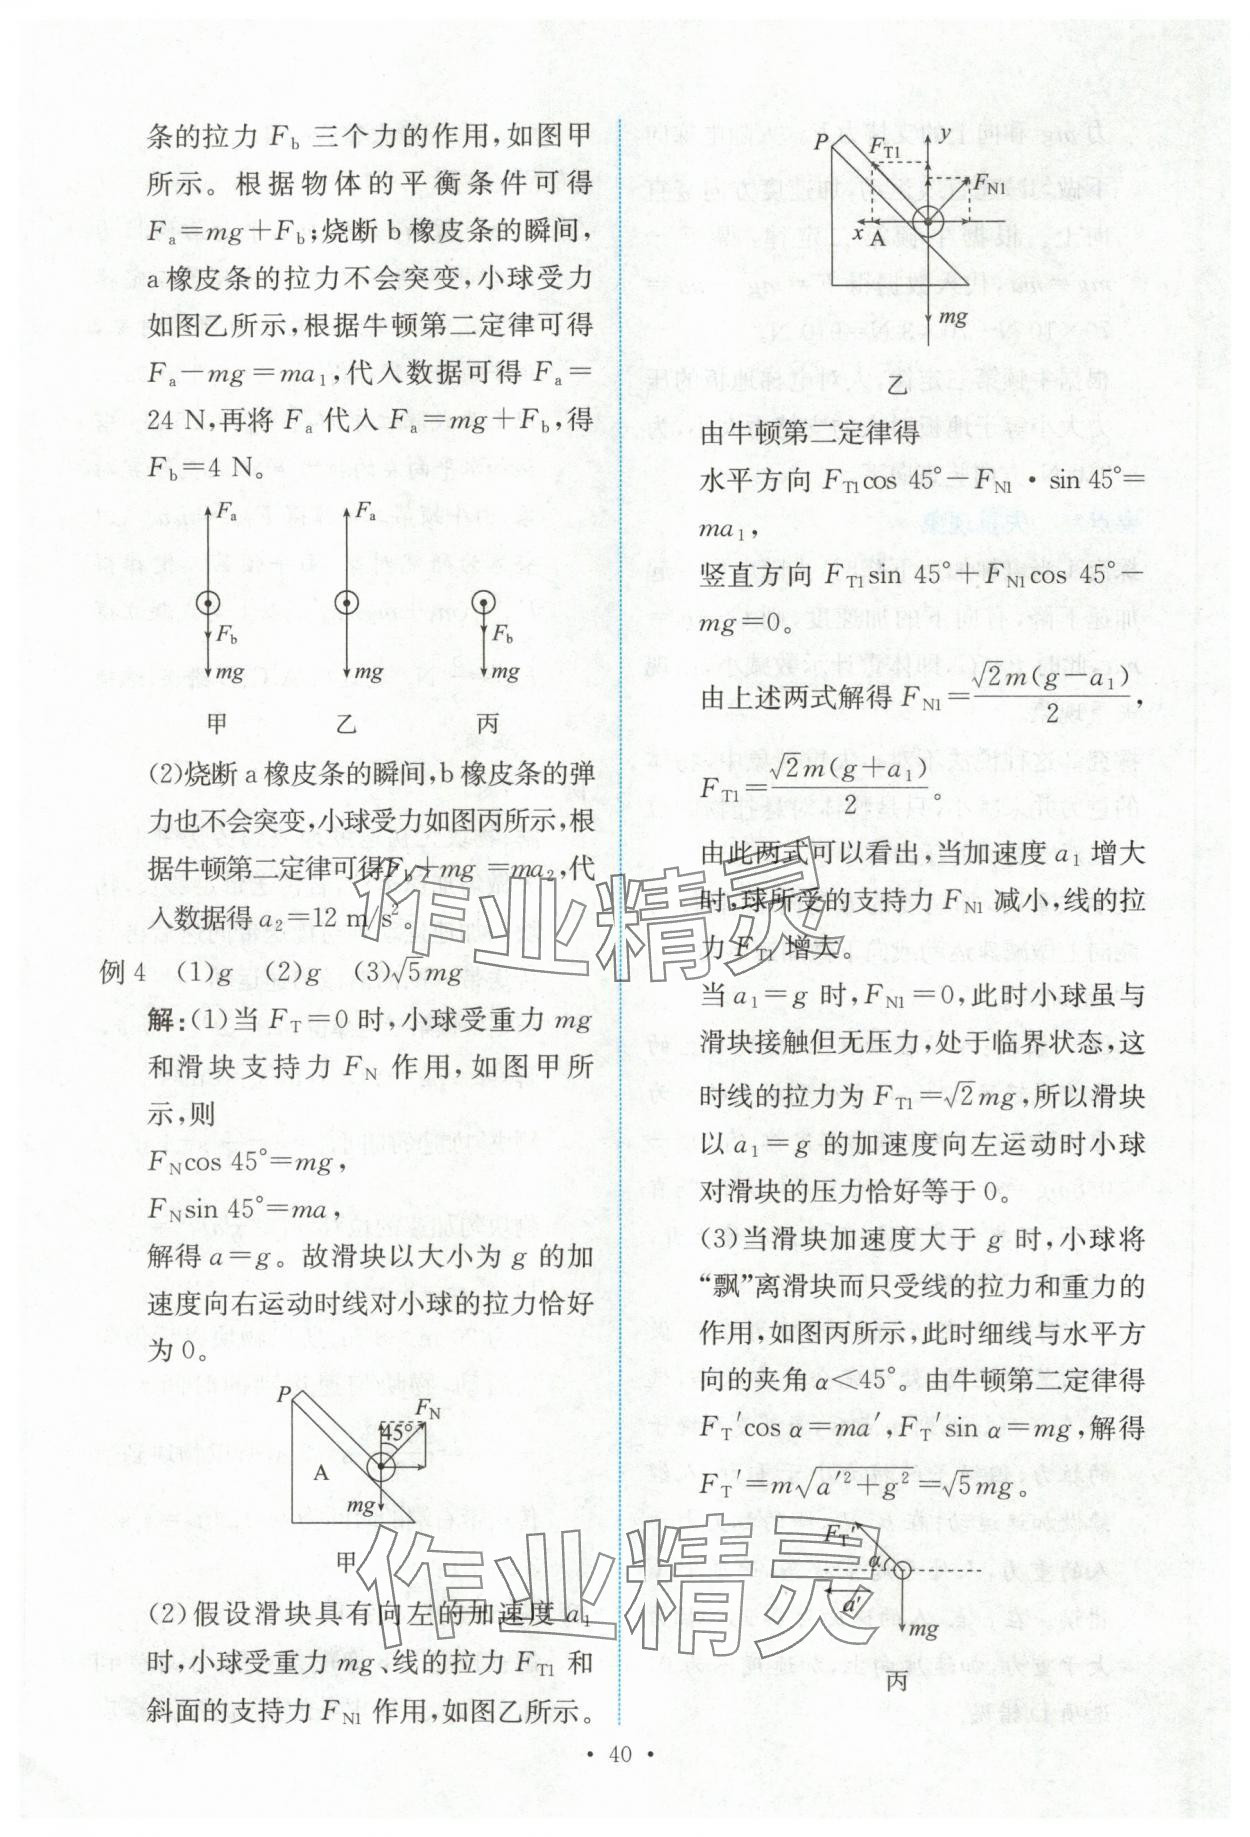 条的拉力 Fb 三个力的作用,如图甲
所示。根据物体的平衡条件可得
Fa=mg+Fb;烧断 b 橡皮条的瞬间,
a 橡皮条的拉力不会突变,小球受力
如图乙所示,根据牛顿第二定律可得
Fa-mg=ma1,代入数据可得 Fa=
24 N,再将 Fa 代入 Fa=mg+Fb,得
Fb=4 N。
Fa Fb mg 甲
Fa mg 乙
Fb mg 丙
(2)烧断 a 橡皮条的瞬间,b 橡皮条的弹
力也不会突变,小球受力如图丙所示,根
据牛顿第二定律可得Fb+mg=ma2,代
入数据得 a2=12 m/s²。
例 4 (1)g (2)g (3)√5mg
解:(1)当 FT=0 时,小球受重力 mg
和滑块支持力 FN 作用,如图甲所
示,则
FNcos 45°=mg,
FNsin 45°=ma,
解得 a=g。故滑块以大小为 g 的加
速度向右运动时线对小球的拉力恰好
为 0。
P FN 45° A mg
甲
(2)假设滑块具有向左的加速度 a1
时,小球受重力 mg、线的拉力 FT1 和
斜面的支持力 FN1 作用,如图乙所示。
P FT1 y FN1 x A mg
乙
由牛顿第二定律得
水平方向 FT1cos 45°-FN1·sin 45°=
ma1,
竖直方向 FT1sin 45°+FN1cos 45°-
mg=0。
由上述两式解得 FN1=√2m(g-a1)/2,
FT1=√2m(g+a1)/2。
由此两式可以看出,当加速度 a1 增大
时,球所受的支持力 FN1 减小,线的拉
力 FT1 增大。
当 a1=g 时,FN1=0,此时小球虽与
滑块接触但无压力,处于临界状态,这
时线的拉力为 FT1=√2mg,所以滑块
以 a1=g 的加速度向左运动时小球
对滑块的压力恰好等于 0。
(3)当滑块加速度大于 g 时,小球将
“飘”离滑块而只受线的拉力和重力的
作用,如图丙所示,此时细线与水平方
向的夹角 α<45°。由牛顿第二定律得
FT′cos α=ma′,FT′sin α=mg,解得
FT′=m√(a′²+g²)=√5mg。
FT′ α a′ mg
丙
作业精灵
作业精灵
· 40 ·